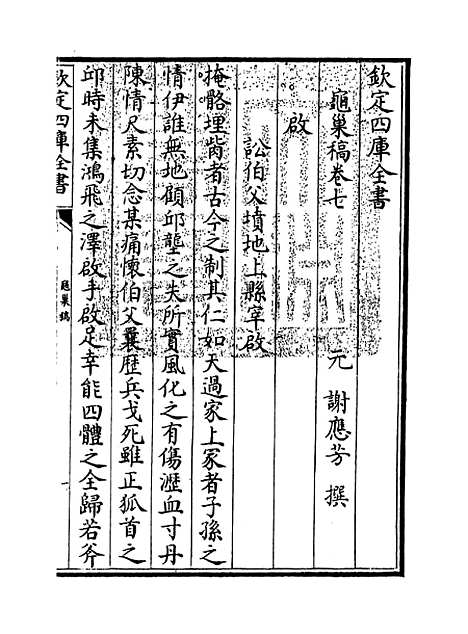 欽定四庫全書
龜巢稿卷七
元 謝應芳 撰
啟
訟伯父墳地上縣宰啟
掩骼埋胔者古今之制其仁如天過家上冢者子孫之
情伊誰無地顧邱壟之失所實風化之有傷瀝血寸丹
陳情尺素切念某痛懷伯父曩歷兵戈死雖正狐首之
邱時未集鴻飛之澤啟手啟足幸能四體之全歸若斧
欽定四庫全書
龜巢稿
一